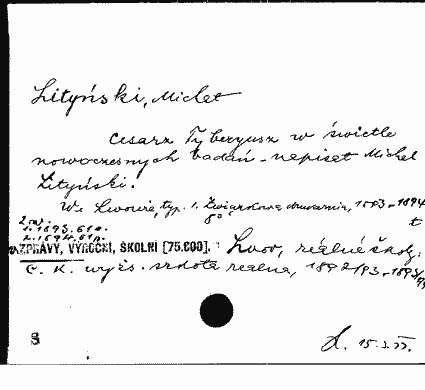 Lityński, Michał
Cesarz Tyberyusz w świetle
nowoczesnych badań - napisał Michał
Lityński.
We Lwowie, typ. I. Związkowa drukarnia, 1893-1894
8°
2 sv.
1.-1893. 61 s.
2.-1894. 61 p.
ZPRÁVY, VÝROČNÍ, ŠKOLNÍ [75.600]. Lvov, reálné školy.
C. K. wyższ. szkoła realna, 1892/93-1893/94
S
15.3.77.